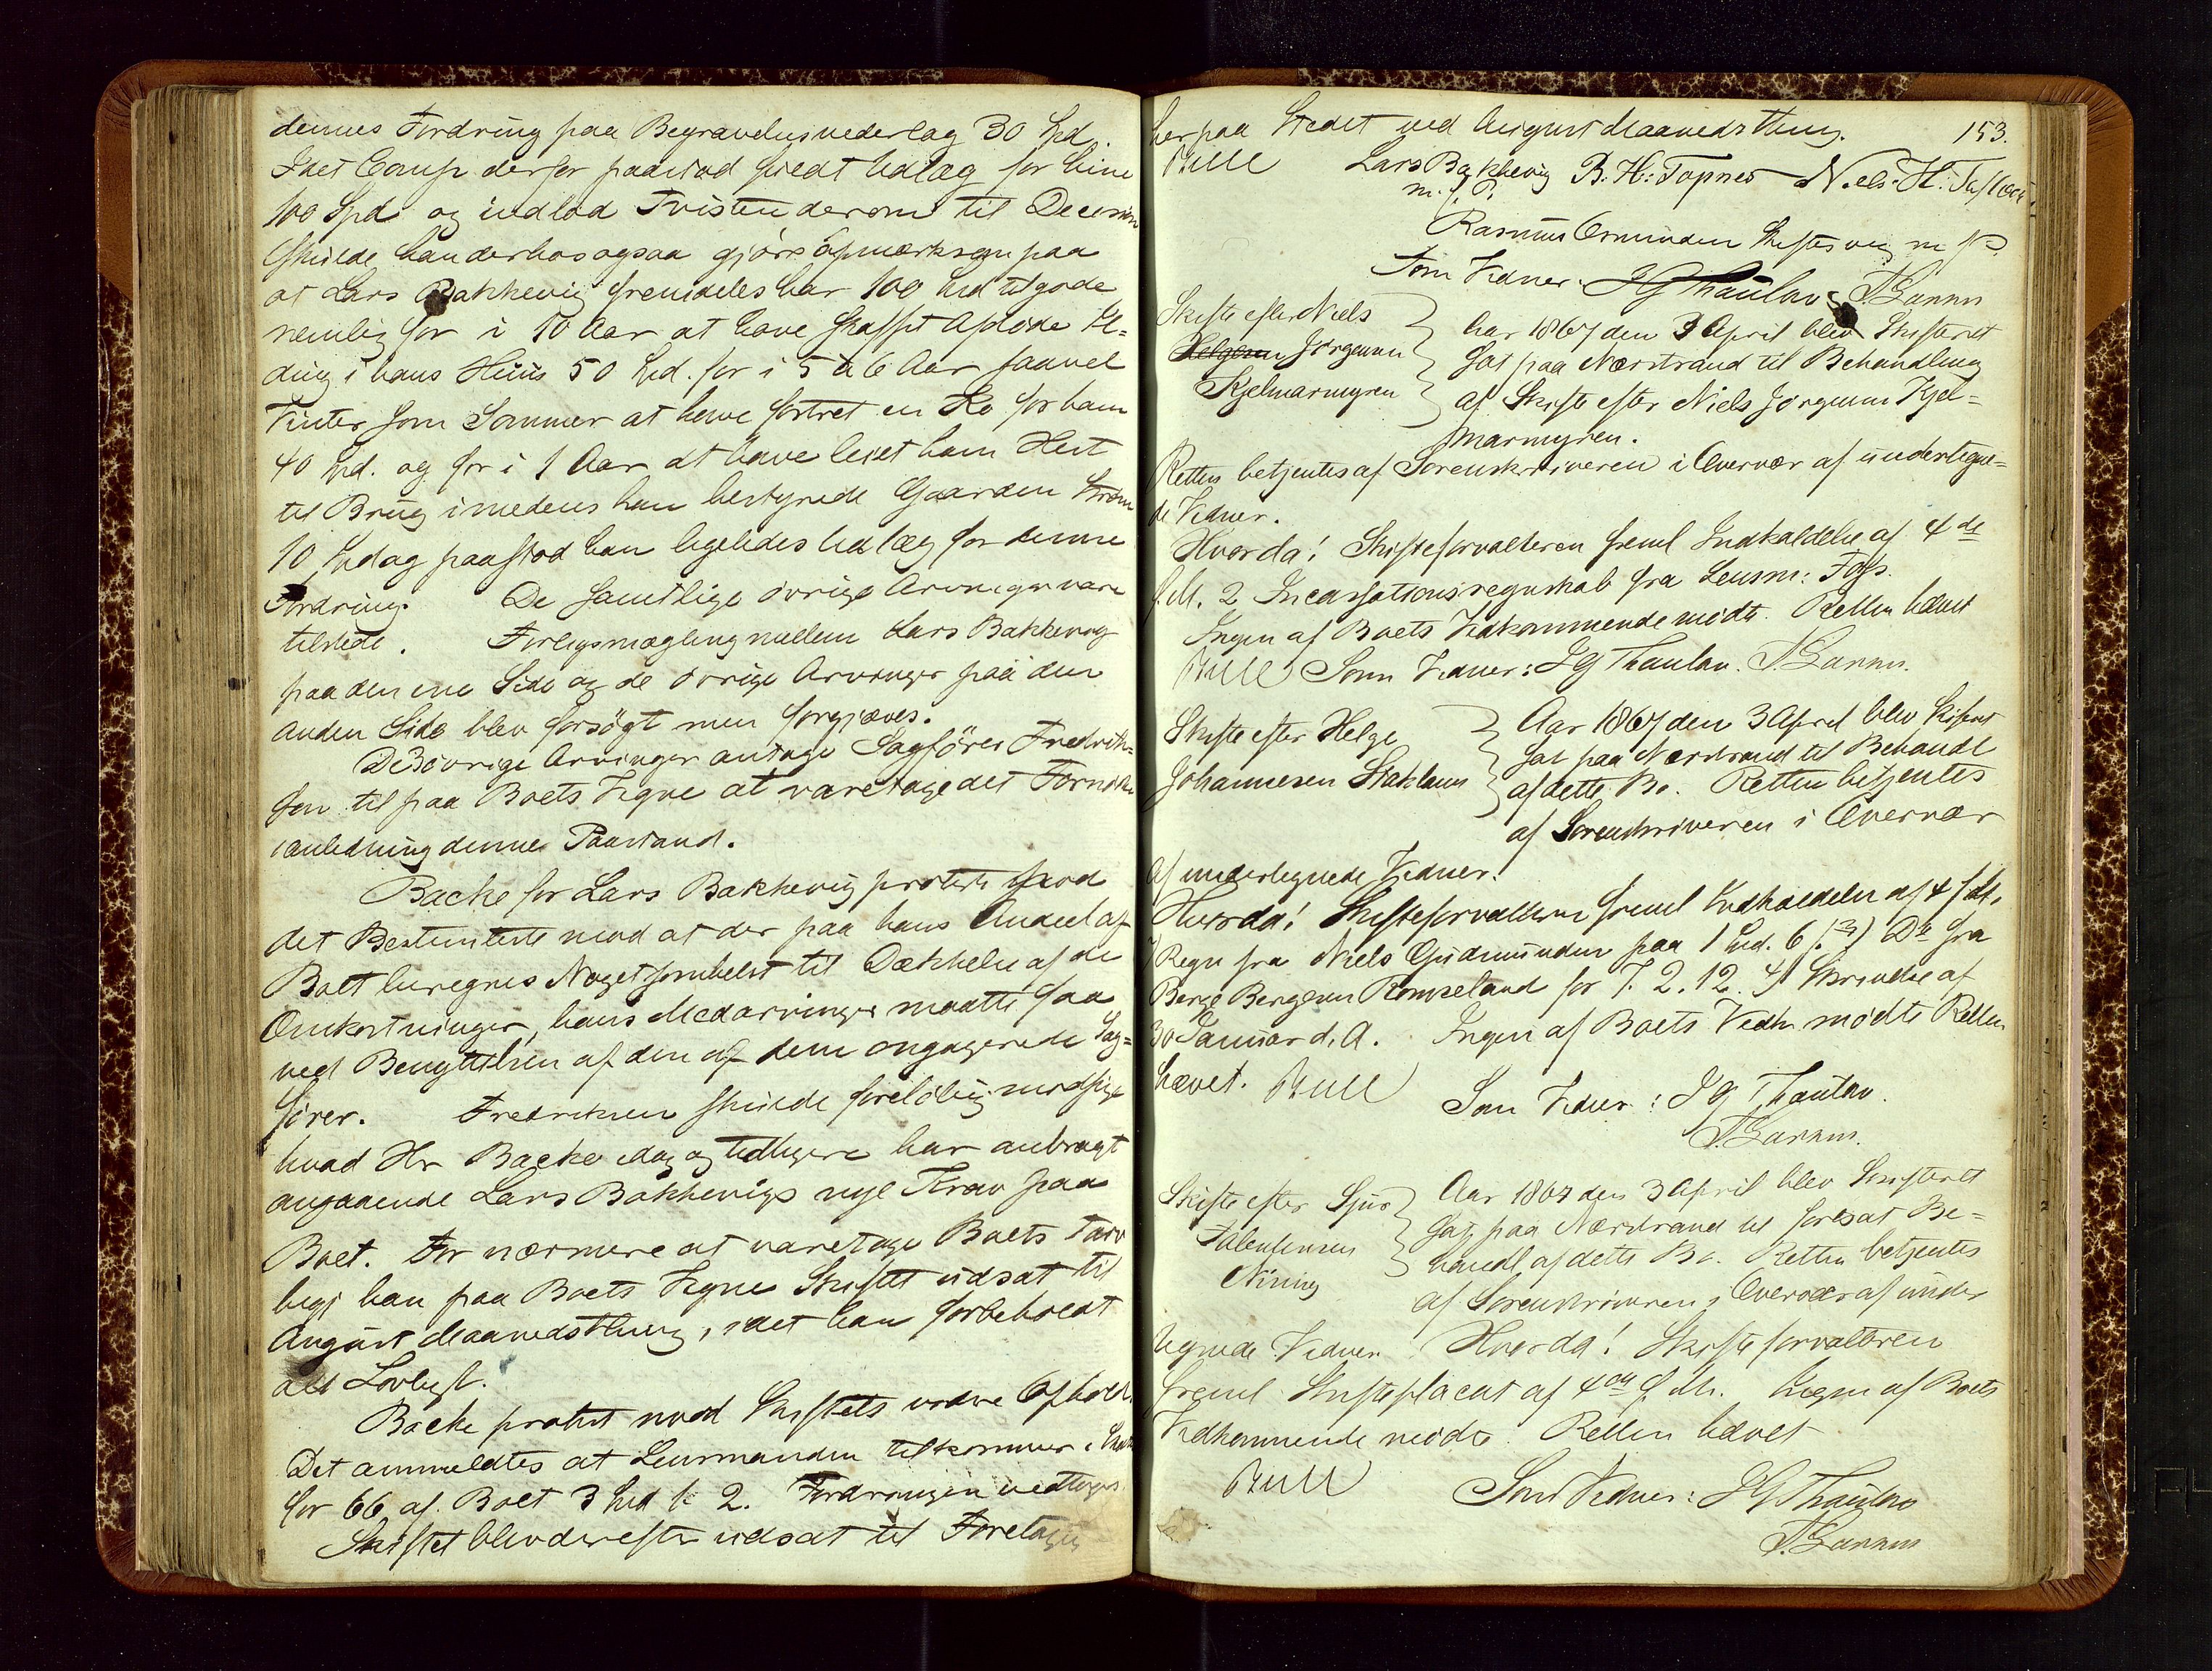 dennes Fordring paa Begravelsesvederlag 30 Spd.
Idet Comp. derfor paastod skeedt Udlæg for hine
100 Spd og indlod Tvisten derom til Decision
skulde han derhos ogsaa gjøre opmærksom paa
at Lars Bakkevig fremdeles har 100 Spd tilgode
nemlig for i 10 Aar at have skaffet Afdøde Il-
ding i hans Huus 50 Spd. for i 5 à 6 Aar saavel
Vinter som Sommer at have fortret en Ko for ham
40 Spd. og for i 1 Aar at have leiet ham Hest
til Brug imedens han bestyrede Gaarden
10 Spd og paastod han ligeledes Udlæg for denne
Fordring. De samtlige øvrige Arvinger vare
tilstede. Forligsmægling mellem Lars Bakkevig
paa den ene Side og de øvrige Arvinger paa den
anden Side blev forsøgt men forgjæves.
De øvrige Arvinger antage Sagfører Fredrik-
sen til paa Boets Vegne at varetage det Fornødne
i anledning denne Paastand.
Backe for Lars Bakkevig protesterede
det Bestemteste mod at der paa hans Andeel af
Boet beregnes Noget somhelst til Dækkelse af de
Omkostninger, hans Medarvinger maatte faa
ved Benyttelsen af den af dem engagerede Sag-
fører. Fredriksen skulde foreløbig modsige
hvad Hr Backe idag og tidligere har anbragt
angaaende Lars Bakkevigs nye Krav paa
Boet. For nærmere at varetage Boets Tarv
begj han paa Boets Vegne Skiftet udsat til
August Maanedsthing, idet han forbeholdt
alt Lovligt.
Backe protest mod Skiftets videre Ophold.
Det anmeldtes at Lensmanden tilkommer i Skat
for 66 af Boet 3 Spd 1 2. Fordringen vedtoges.
Skiftet blev derefter udsat til Foretagelse
153.
her paa Stedet ved August Maanedsthing.
Bull Lars Bakkevig B. H: Topnes Niels H:
m. f. P.
Rasmus Osmundsen m f P
Som Vidner: I G Thaulow
Skifte efter Niels
Helgesen Jørgensen
Kjelmarmyren
Aar 1867 den 3 April blev Skifteret
sat paa Nærstrand til Behandling
af Skifte efter Niels Jørgensen Kjel-
marmyren.
Retten betjentes af Sorenskriveren i Overvær af undertegne-
de Vidner.
Hvorda! Skifteforvalteren freml Indkaldelse af 4de
f. M. 2 Incassationsregnskab fra Lensm:
Ingen af Boets Vedkommende mødte. Retten hævet
Bull Som Vidner: I G Thaulow.
Skifte efter Helge
Johannesen Stakland
Aar 1867 den 3 April blev Skifteret
sat paa Nærstrand til Behandl
af dette Bo. Retten betjentes
af Sorenskriveren i Overvær
af undertegnede Vidner.
Hvorda! Skifteforvalteren freml Indkaldelse af 4 f M.
Regn fra Niels Gudmundsen paa 1 Spd. 6 Do fra
Berge Bergesen for 7. 2. 12. 4) Skrivelse af
30 Januar d. A. Ingen af Boets Vedk mødte Retten
hævet. Bull
Som Vidner: I G Thaulow.
Skifte efter Sjur
Aar 1867 den 3 April blev Skifteret
sat paa Nærstrand til fortsat Be-
handl af dette Bo. Retten betjentes
af Sorenskriveren i Overvær af under
tegnede Vidner. Hvorda! Skifteforvalteren
freml Skifteplacat af 4de f. M. Ingen af Boets
Vedkommende mødte. Retten hævet
Bull
Som Vidner: I G Thaulow